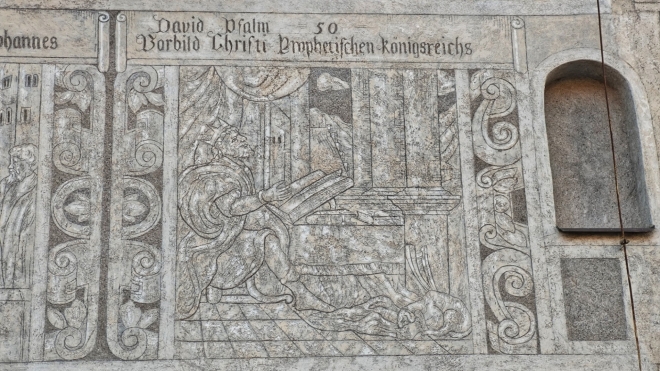 David Psalm 50
Vorbild Christi Prophetischen Königsreichs
ohannes